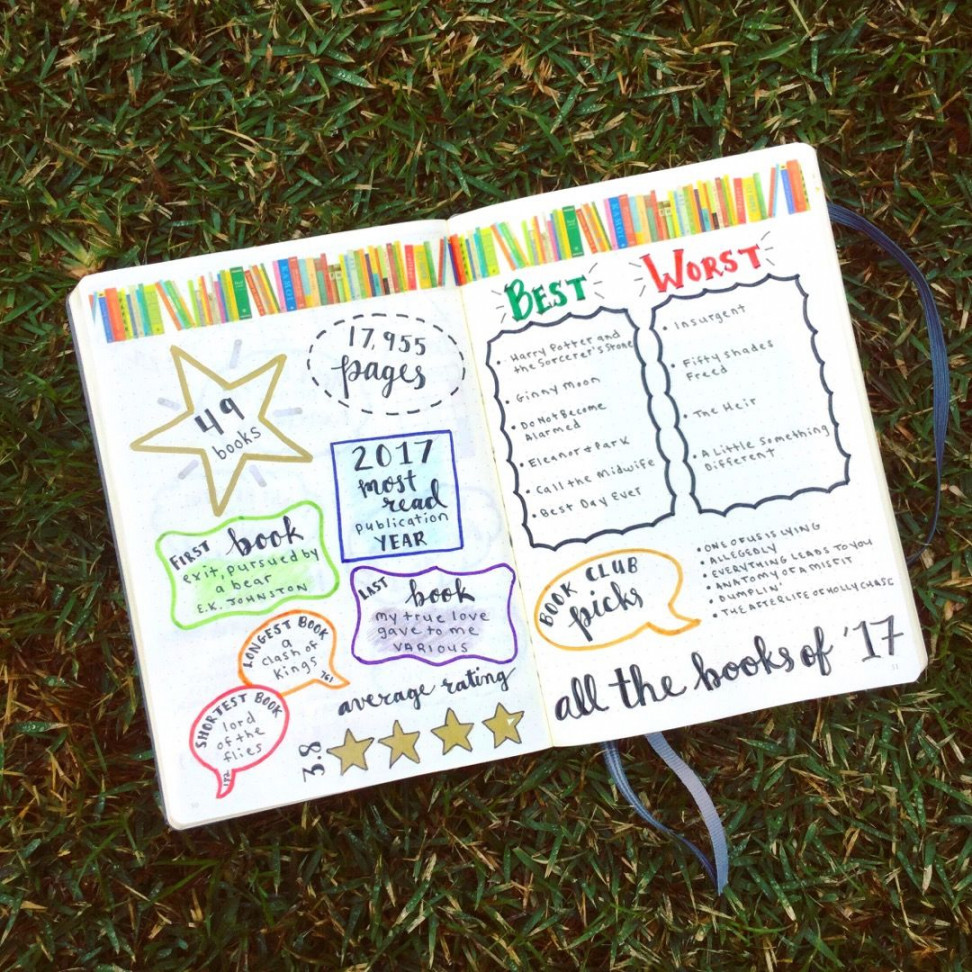 49
books
17,955
pages
2017
most
read
publication
YEAR
FIRST book
exit, pursued by
a bear
E.K. JOHNSTON
LAST book
my true love
gave to me
VARIOUS
LONGEST BOOK
a
clash of
kings
761
SHORTEST BOOK
lord
of the
flies
182
average rating
3.8
BEST
• Harry Potter and
the Sorcerer's Stone
• Ginny Moon
• Do Not Become
Alarmed
• Eleanor + Park
• Call the Midwife
• Best Day Ever
WORST
• Insurgent
• Fifty Shades
Freed
• The Heir
• A Little Something
Different
BOOK CLUB
picks
• ONE OF US IS LYING
• ALLEGEDLY
• EVERYTHING LEADS TO YOU
• ANATOMY OF A MISFIT
• DUMPLIN'
• THE AFTERLIFE OF HOLLY CHASE
all the books of '17